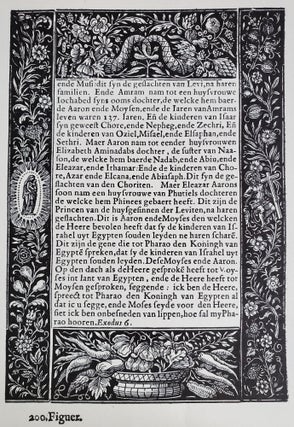 ende Musi: dit syn de geslachten van Levi, na haren
familien. Ende Amram nam tot een huysvrouwe
Iochabed syns ooms dochter, de welcke hem baer-
de Aaron ende Moysen, ende de Iaren van Amrams
leven waren 137. Iaren, Eñ de kinderen van Isaar
syn geweest Chore, ende Nepheg, ende Zechri, Eñ
de kinderen van Oziel, Misael, ende Elsaphan, ende
Sethri. Maer Aaron nam tot eender huysvrouwen
Elizabeth Aminadabs dochter, de suster van Naas-
son, de welcke hem baerde Nadab, ende Abio, ende
Eleazar, ende Ithamar: Ende de kinderen van Cho-
re, Asar ende Elcana, ende Abiasaph. Dit syn de ge-
slachten van den Choriten. Maer Eleazer Aarons
soon nam een huysvrouwe van Phutiels dochteren
de welcke hem Phinees gebaert heeft. Dit zijn de
Princen van de huysgesinnen der Leviten, na haren
geslachten. Dit is Aaron ende Moyses den welcken
de Heere bevolen heeft dat sy de kinderen van Is-
rahel uyt Egypten souden leyden na haren scharē.
Dit zijn de gene die tot Pharao den Koningh van
Egyptē spreken, dat sy de kinderen van Israhel uyt
Egypten souden leyden. Dese Moyses ende Aaron.
Op den dach als de Heere gesprokē heeft tot Moy-
ses int lant van Egypten, ende de Heere heeft tot
Moysen gesproken, seggende: ick ben de Heere,
spreect tot Pharao den Koningh van Egypten al
dat ic u segge, ende Moyses seyde voor den Heere,
siet ick ben onbesneden van lippen, hoe sal my Pha-
rao hooren. Exodus 6.
200. Figuer.